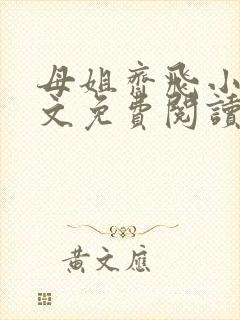 母姐齊飛小
文免費閱讀
黃文應